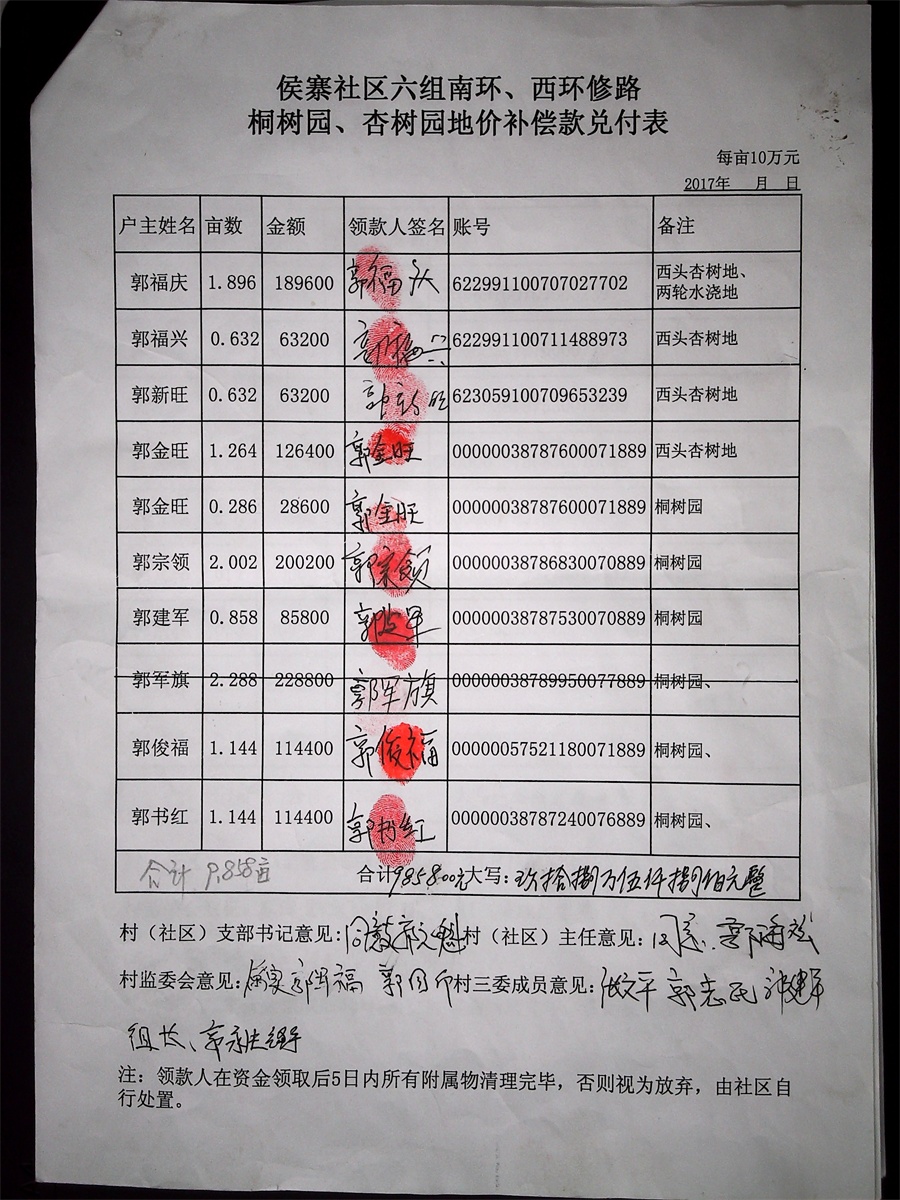 侯寨社区六组南环、西环修路
桐树园、杏树园地价补偿款兑付表
每亩10万元
2017年 月 日
户主姓名 亩数 金额 领款人签名 账号 备注
郭福庆 1.896 189600 郭福庆 622991100707027702 西头杏树地、
两轮水浇地
郭福兴 0.632 63200 郭福兴 622991100711488973 西头杏树地
郭新旺 0.632 63200 郭新旺 623059100709653239 西头杏树地
郭金旺 1.264 126400 郭金旺 00000038787600071889 西头杏树地
郭金旺 0.286 28600 郭金旺 00000038787600071889 桐树园
郭宗领 2.002 200200 郭宗领 00000038786830070889 桐树园
郭建军 0.858 85800 郭建军 00000038787530070889 桐树园
郭军旗 2.288 228800 郭军旗 00000038789950077889 桐树园、
郭俊福 1.144 114400 郭俊福 00000057521180071889 桐树园、
郭书红 1.144 114400 郭书红 00000038787240076889 桐树园、
合计 9.858亩 合计985800元大写：玖拾捌万伍仟捌佰元整
村（社区）支部书记意见： 村（社区）主任意见：同意
村监委会意见： 村三委成员意见： 郭志民
组长、
注：领款人在资金领取后5日内所有附属物清理完毕，否则视为放弃，由社区自
行处置。